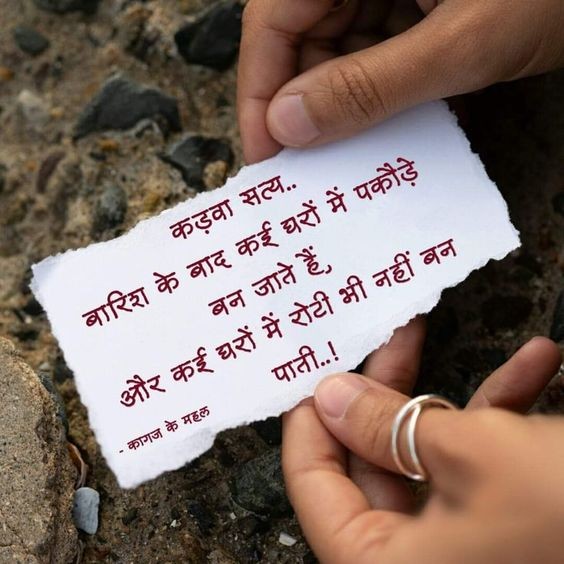 कड़वा सत्य..
बारिश के बाद कई घरों में पकौड़े
बन जाते हैं,
और कई घरों में रोटी भी नहीं बन
पाती..!
- कागज के महल